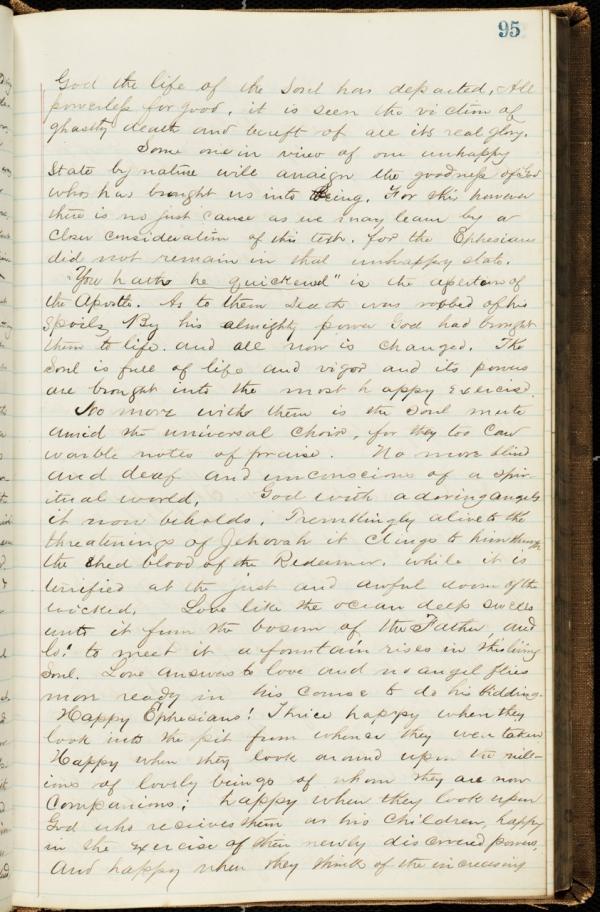 95
God the life of the Soul has departed. All
powerless for good, it is seen the victim of
ghastly death and bereft of all its real glory.
Some one in view of our unhappy
State by nature will arraign the goodness of God
who has brought us into Being. For this however
there is no just cause as we may learn by a
closer consideration of this text. for the Ephesians
did not remain in that unhappy state.
"You hath he quickened" is the assertion of
the Apostle. As to them Death was robbed of his
Spoils, By his almighty power God had brought
them to life. and all now is changed. The
Soul is full of life and vigor and its powers
are brought into the most happy exercise.
No more with them is the Soul mute
amid the universal choir, for they too can
warble notes of praise. No more blind
and deaf and unconscious of a spir-
itual world. God with adoring angels
it now beholds. Tremblingly alive to the
threatenings of Jehovah it clings to him through
the shed blood of the Redeemer. while it is
terrified at the just and awful doom of the
wicked. Love like the ocean deep swells
unto it from the bosom of the Father and
lo! to meet it a fountain rises in this living
Soul. Love answers to love and no angel flies
more ready in his course to do his bidding.
Happy Ephesians! Thrice happy when they
look into the pit from whence they were taken
Happy when they look around upon the mill-
ions of lovely beings of whom they are now
Companions; happy when they look upon
God who receives them as his children, happy
in the exercise of their newly discovered powers,
and happy when they think of the increasing